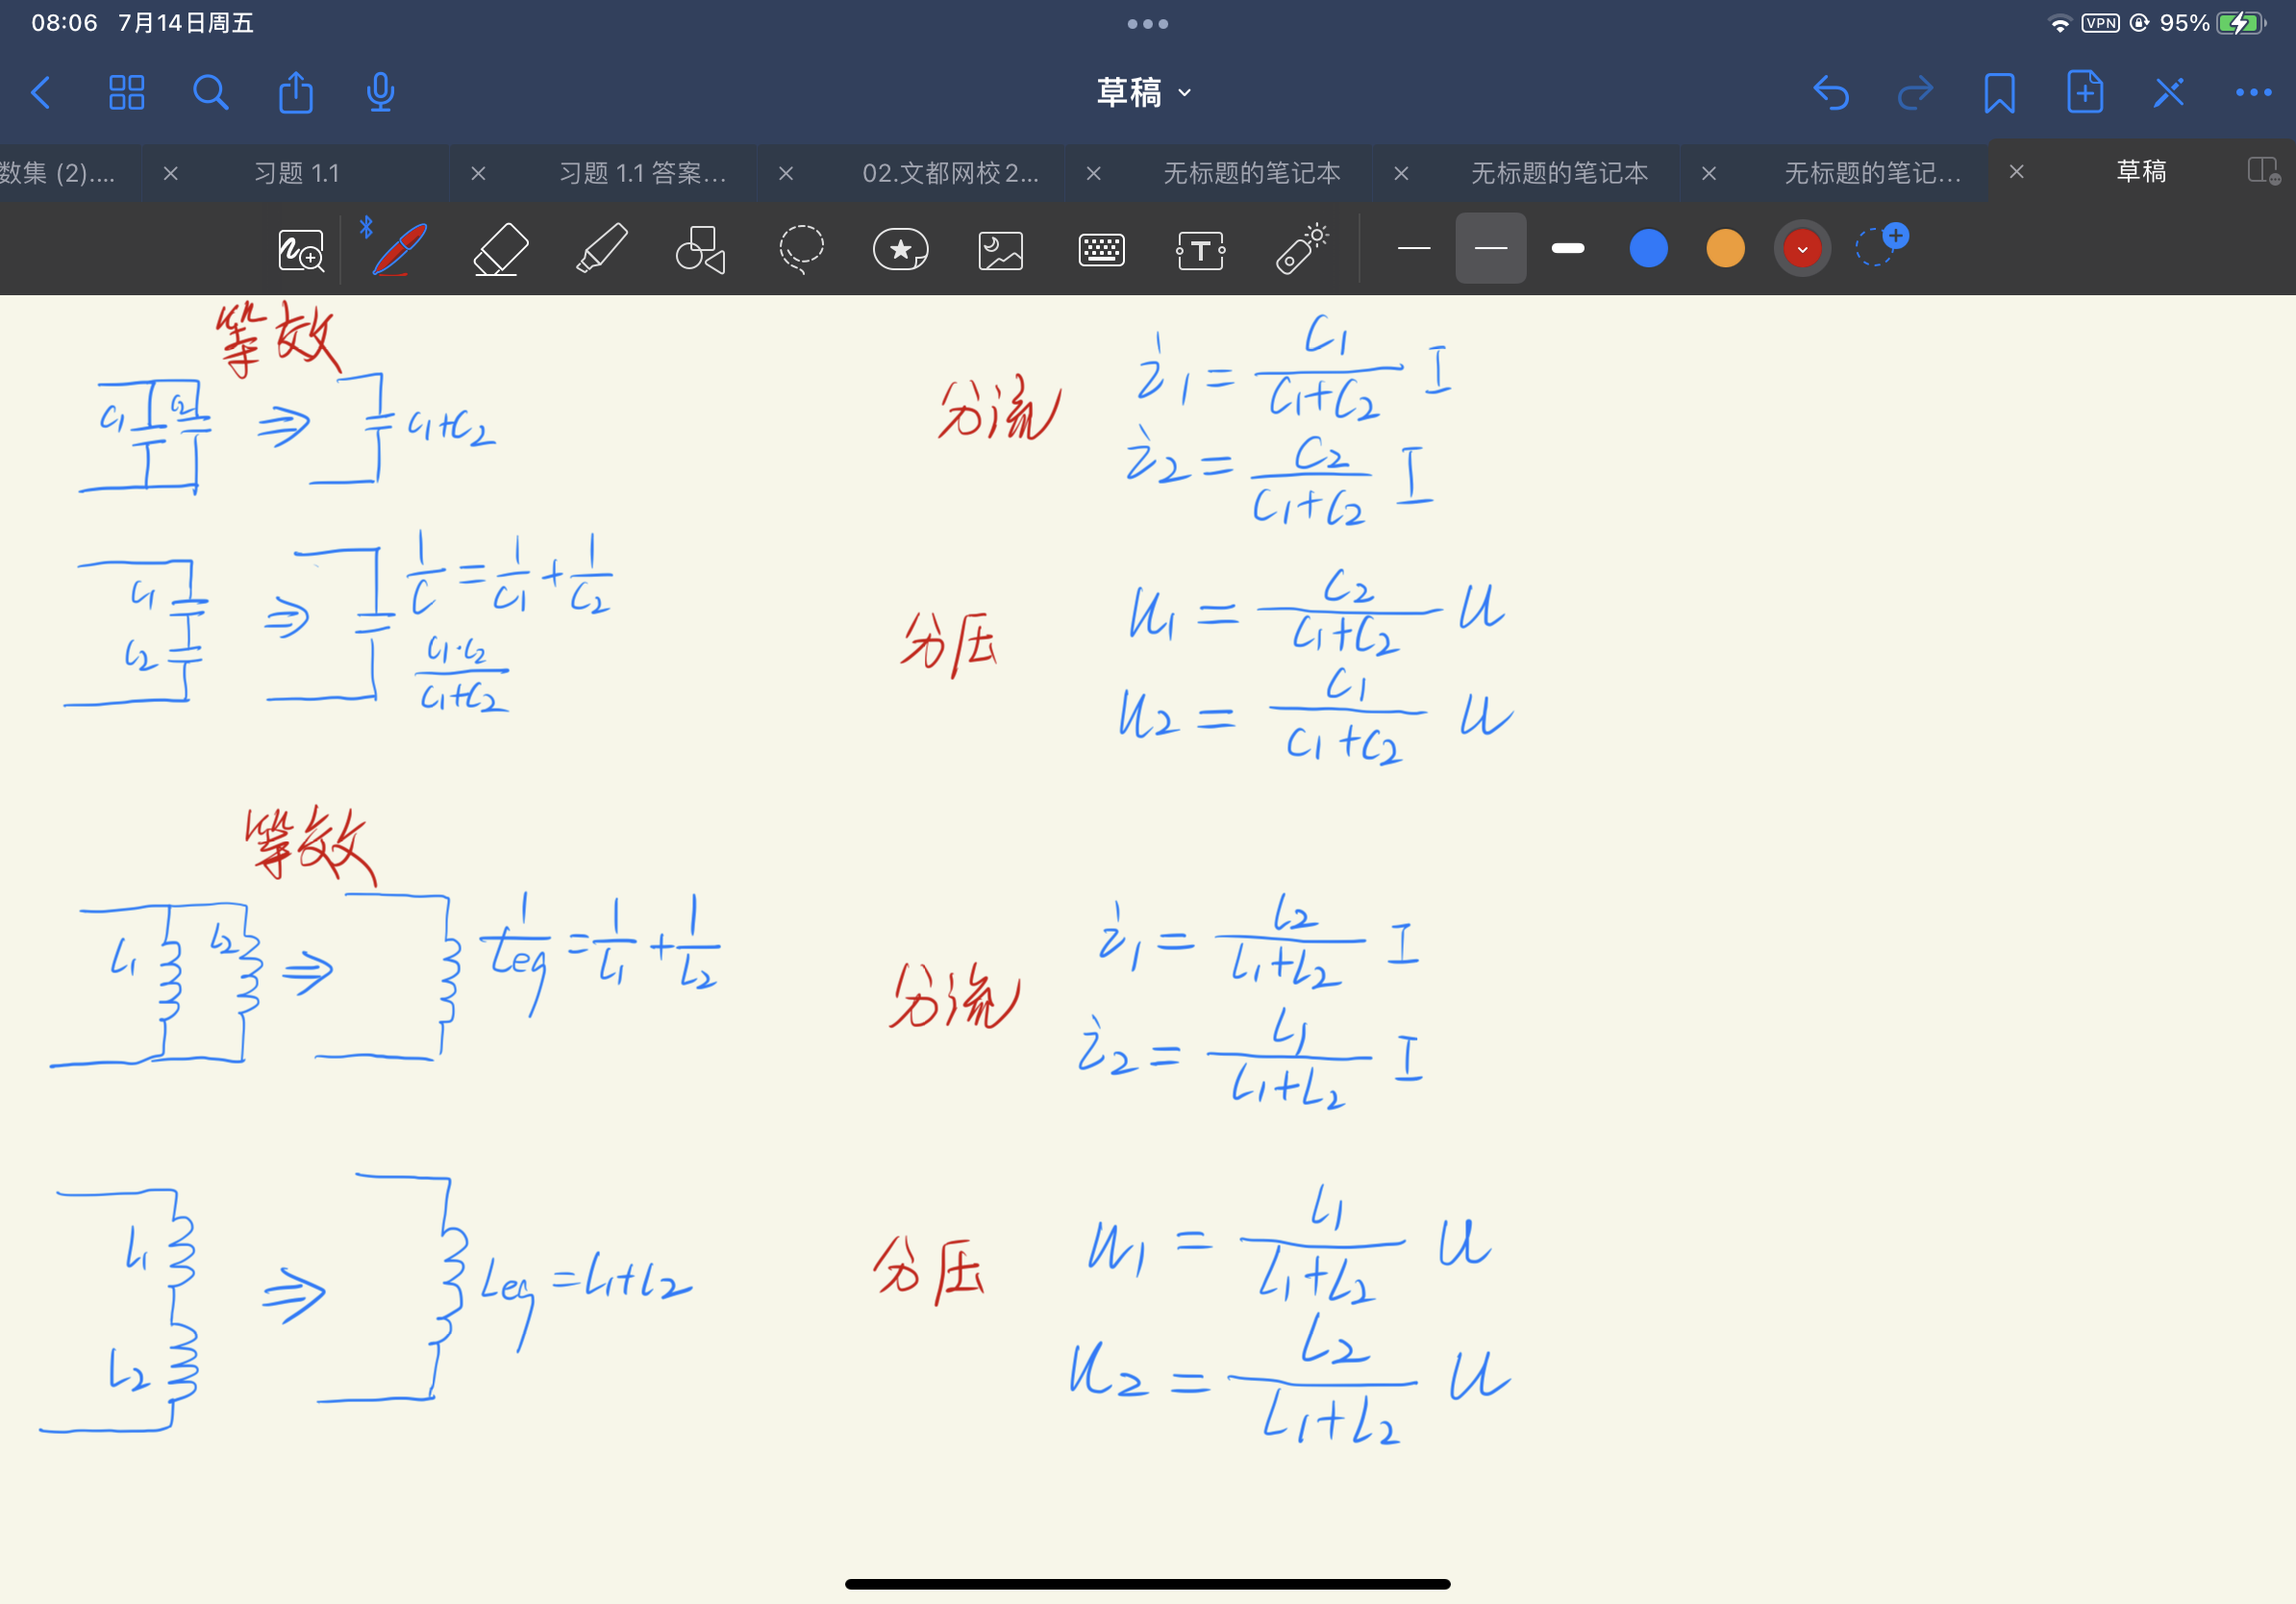 08:06 7月14日周五
VPN 95%
草稿
数集 (2)....
习题 1.1
习题 1.1 答案...
02.文都网校 2...
无标题的笔记本
无标题的笔记本
无标题的笔记...
草稿
等效
C1 C2 ⇒ C1+C2
分流
i1 = C1/(C1+C2) I
i2 = C2/(C1+C2) I
C1 C2 ⇒ 1/C = 1/C1 + 1/C2
C1·C2/(C1+C2)
分压
U1 = C2/(C1+C2) U
U2 = C1/(C1+C2) U
等效
L1 L2 ⇒ 1/Leq = 1/L1 + 1/L2
分流
i1 = L2/(L1+L2) I
i2 = L1/(L1+L2) I
L1 L2 ⇒ Leq = L1+L2
分压
U1 = L1/(L1+L2) U
U2 = L2/(L1+L2) U